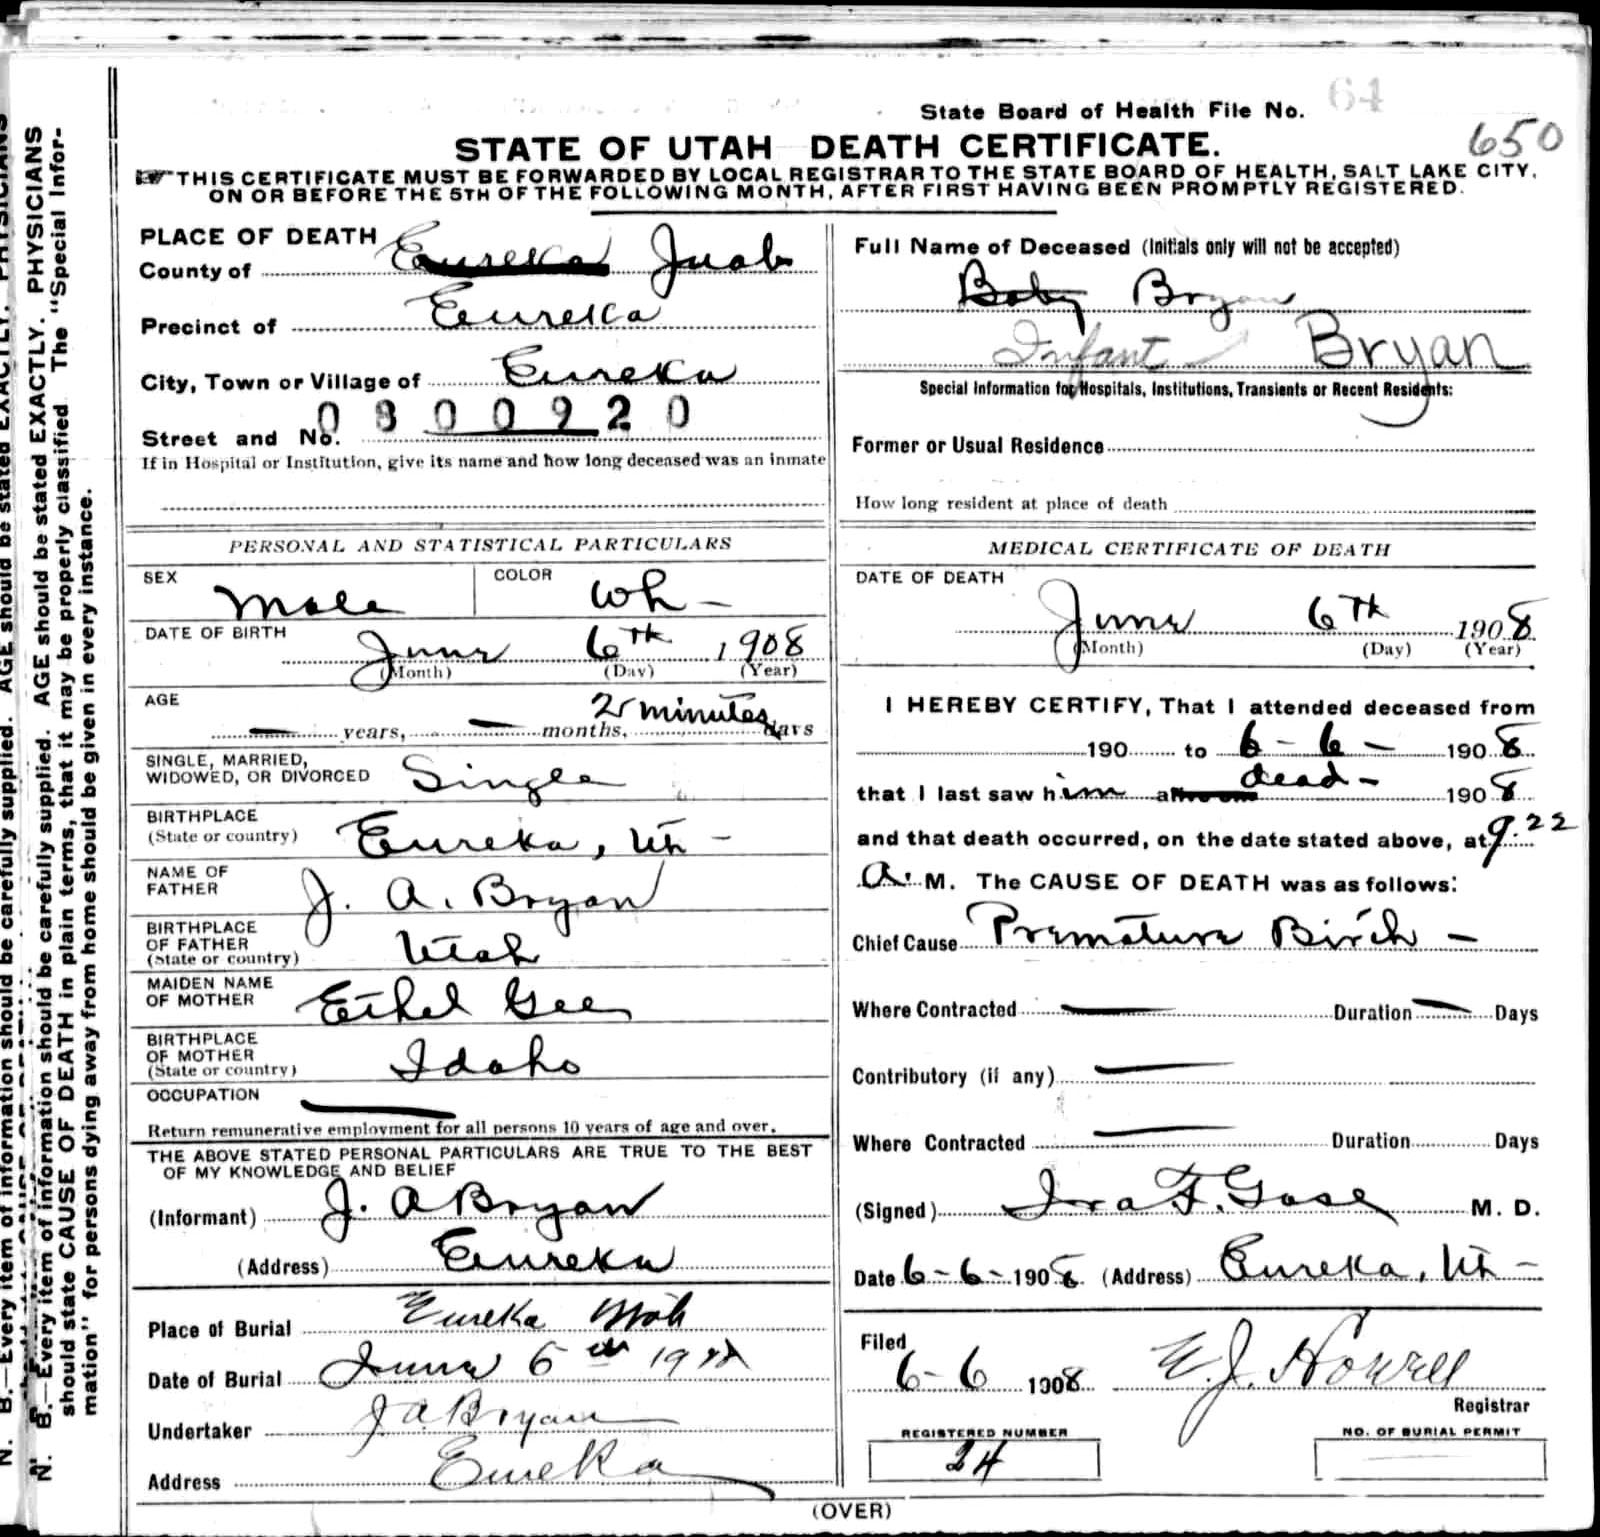 State Board of Health File No. 64
650
STATE OF UTAH DEATH CERTIFICATE.
THIS CERTIFICATE MUST BE FORWARDED BY LOCAL REGISTRAR TO THE STATE BOARD OF HEALTH, SALT LAKE CITY,
ON OR BEFORE THE 5TH OF THE FOLLOWING MONTH, AFTER FIRST HAVING BEEN PROMPTLY REGISTERED.
N. B.—Every item of information should be carefully supplied. AGE should be stated EXACTLY. PHYSICIANS
should state CAUSE OF DEATH in plain terms, that it may be properly classified. The "Special Infor-
mation" for persons dying away from home should be given in every instance.
PLACE OF DEATH
County of Eureka Juab
Precinct of Eureka
City, Town or Village of Eureka
0300920
Street and No.
If in Hospital or Institution, give its name and how long deceased was an inmate
Full Name of Deceased (Initials only will not be accepted)
Baby Bryan
Infant Bryan
Special Information for Hospitals, Institutions, Transients or Recent Residents:
Former or Usual Residence
How long resident at place of death
PERSONAL AND STATISTICAL PARTICULARS
SEX Male COLOR Wh -
DATE OF BIRTH
June 6th 1908
(Month) (Day) (Year)
AGE
— years, — months, minutes days
SINGLE, MARRIED,
WIDOWED, OR DIVORCED Single
BIRTHPLACE
(State or country) Eureka, Ut -
NAME OF
FATHER J. A. Bryan
BIRTHPLACE
OF FATHER
(State or country) Utah
MAIDEN NAME
OF MOTHER Ethel Gee
BIRTHPLACE
OF MOTHER
(State or country) Idaho
OCCUPATION —
Return remunerative employment for all persons 10 years of age and over.
THE ABOVE STATED PERSONAL PARTICULARS ARE TRUE TO THE BEST
OF MY KNOWLEDGE AND BELIEF
(Informant) J. A Bryan
(Address) Eureka
Place of Burial Eureka Utah
Date of Burial June 6th 1908
Undertaker J A Bryan
Address Eureka
MEDICAL CERTIFICATE OF DEATH
DATE OF DEATH
June 6th 1908
(Month) (Day) (Year)
I HEREBY CERTIFY, That I attended deceased from
190 to 6 - 6 - 1908
that I last saw him alive on dead - 1908
and that death occurred, on the date stated above, at 9.22
A. M. The CAUSE OF DEATH was as follows:
Chief Cause Premature Birth -
Where Contracted — Duration — Days
Contributory (if any) —
Where Contracted — Duration Days
(Signed) Ira F. M. D.
Date 6-6-1908 (Address) Eureka, Ut -
Filed
6-6 1908 E. J. Howell
Registrar
REGISTERED NUMBER
24
NO. OF BURIAL PERMIT
(OVER)